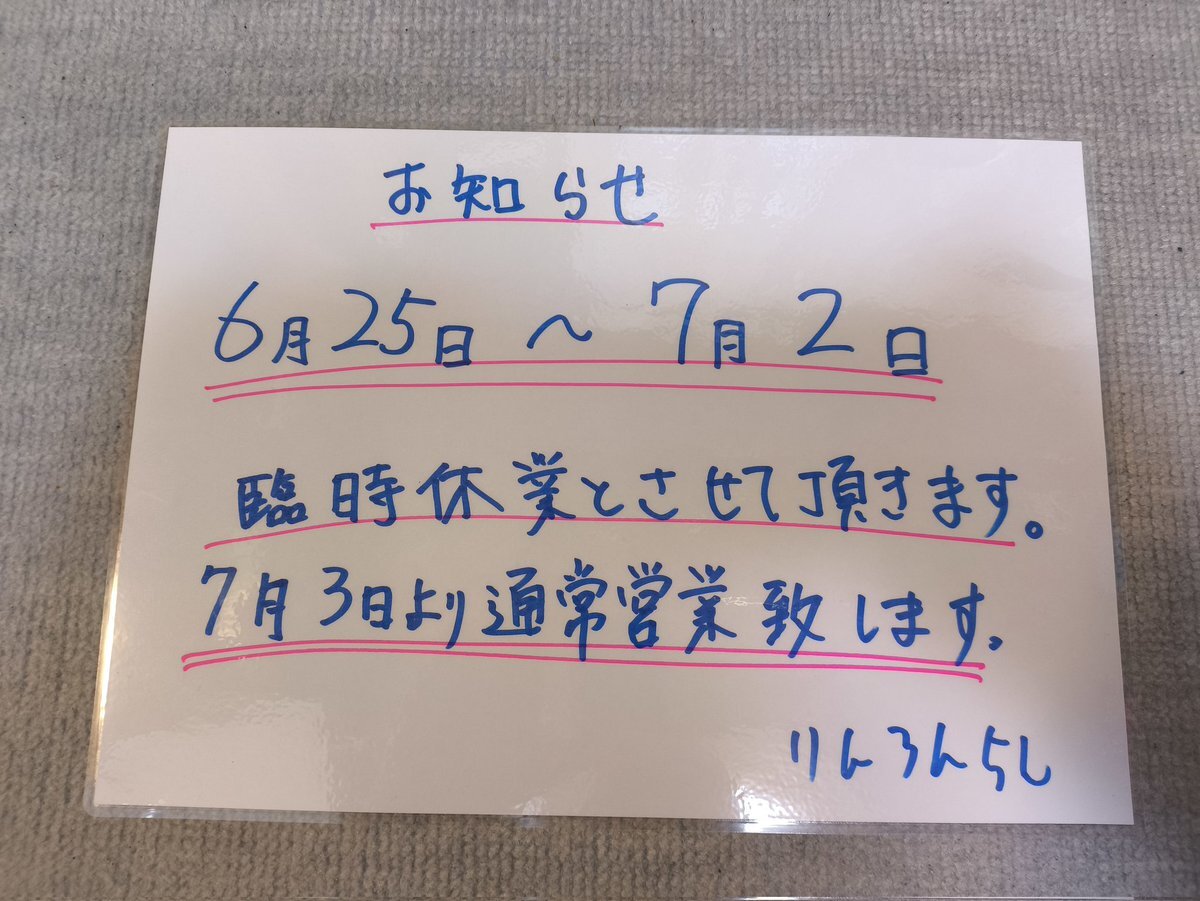 お知らせ
6月25日～7月2日
臨時休業とさせて頂きます。
7月3日より通常営業致します。
りんろんらし